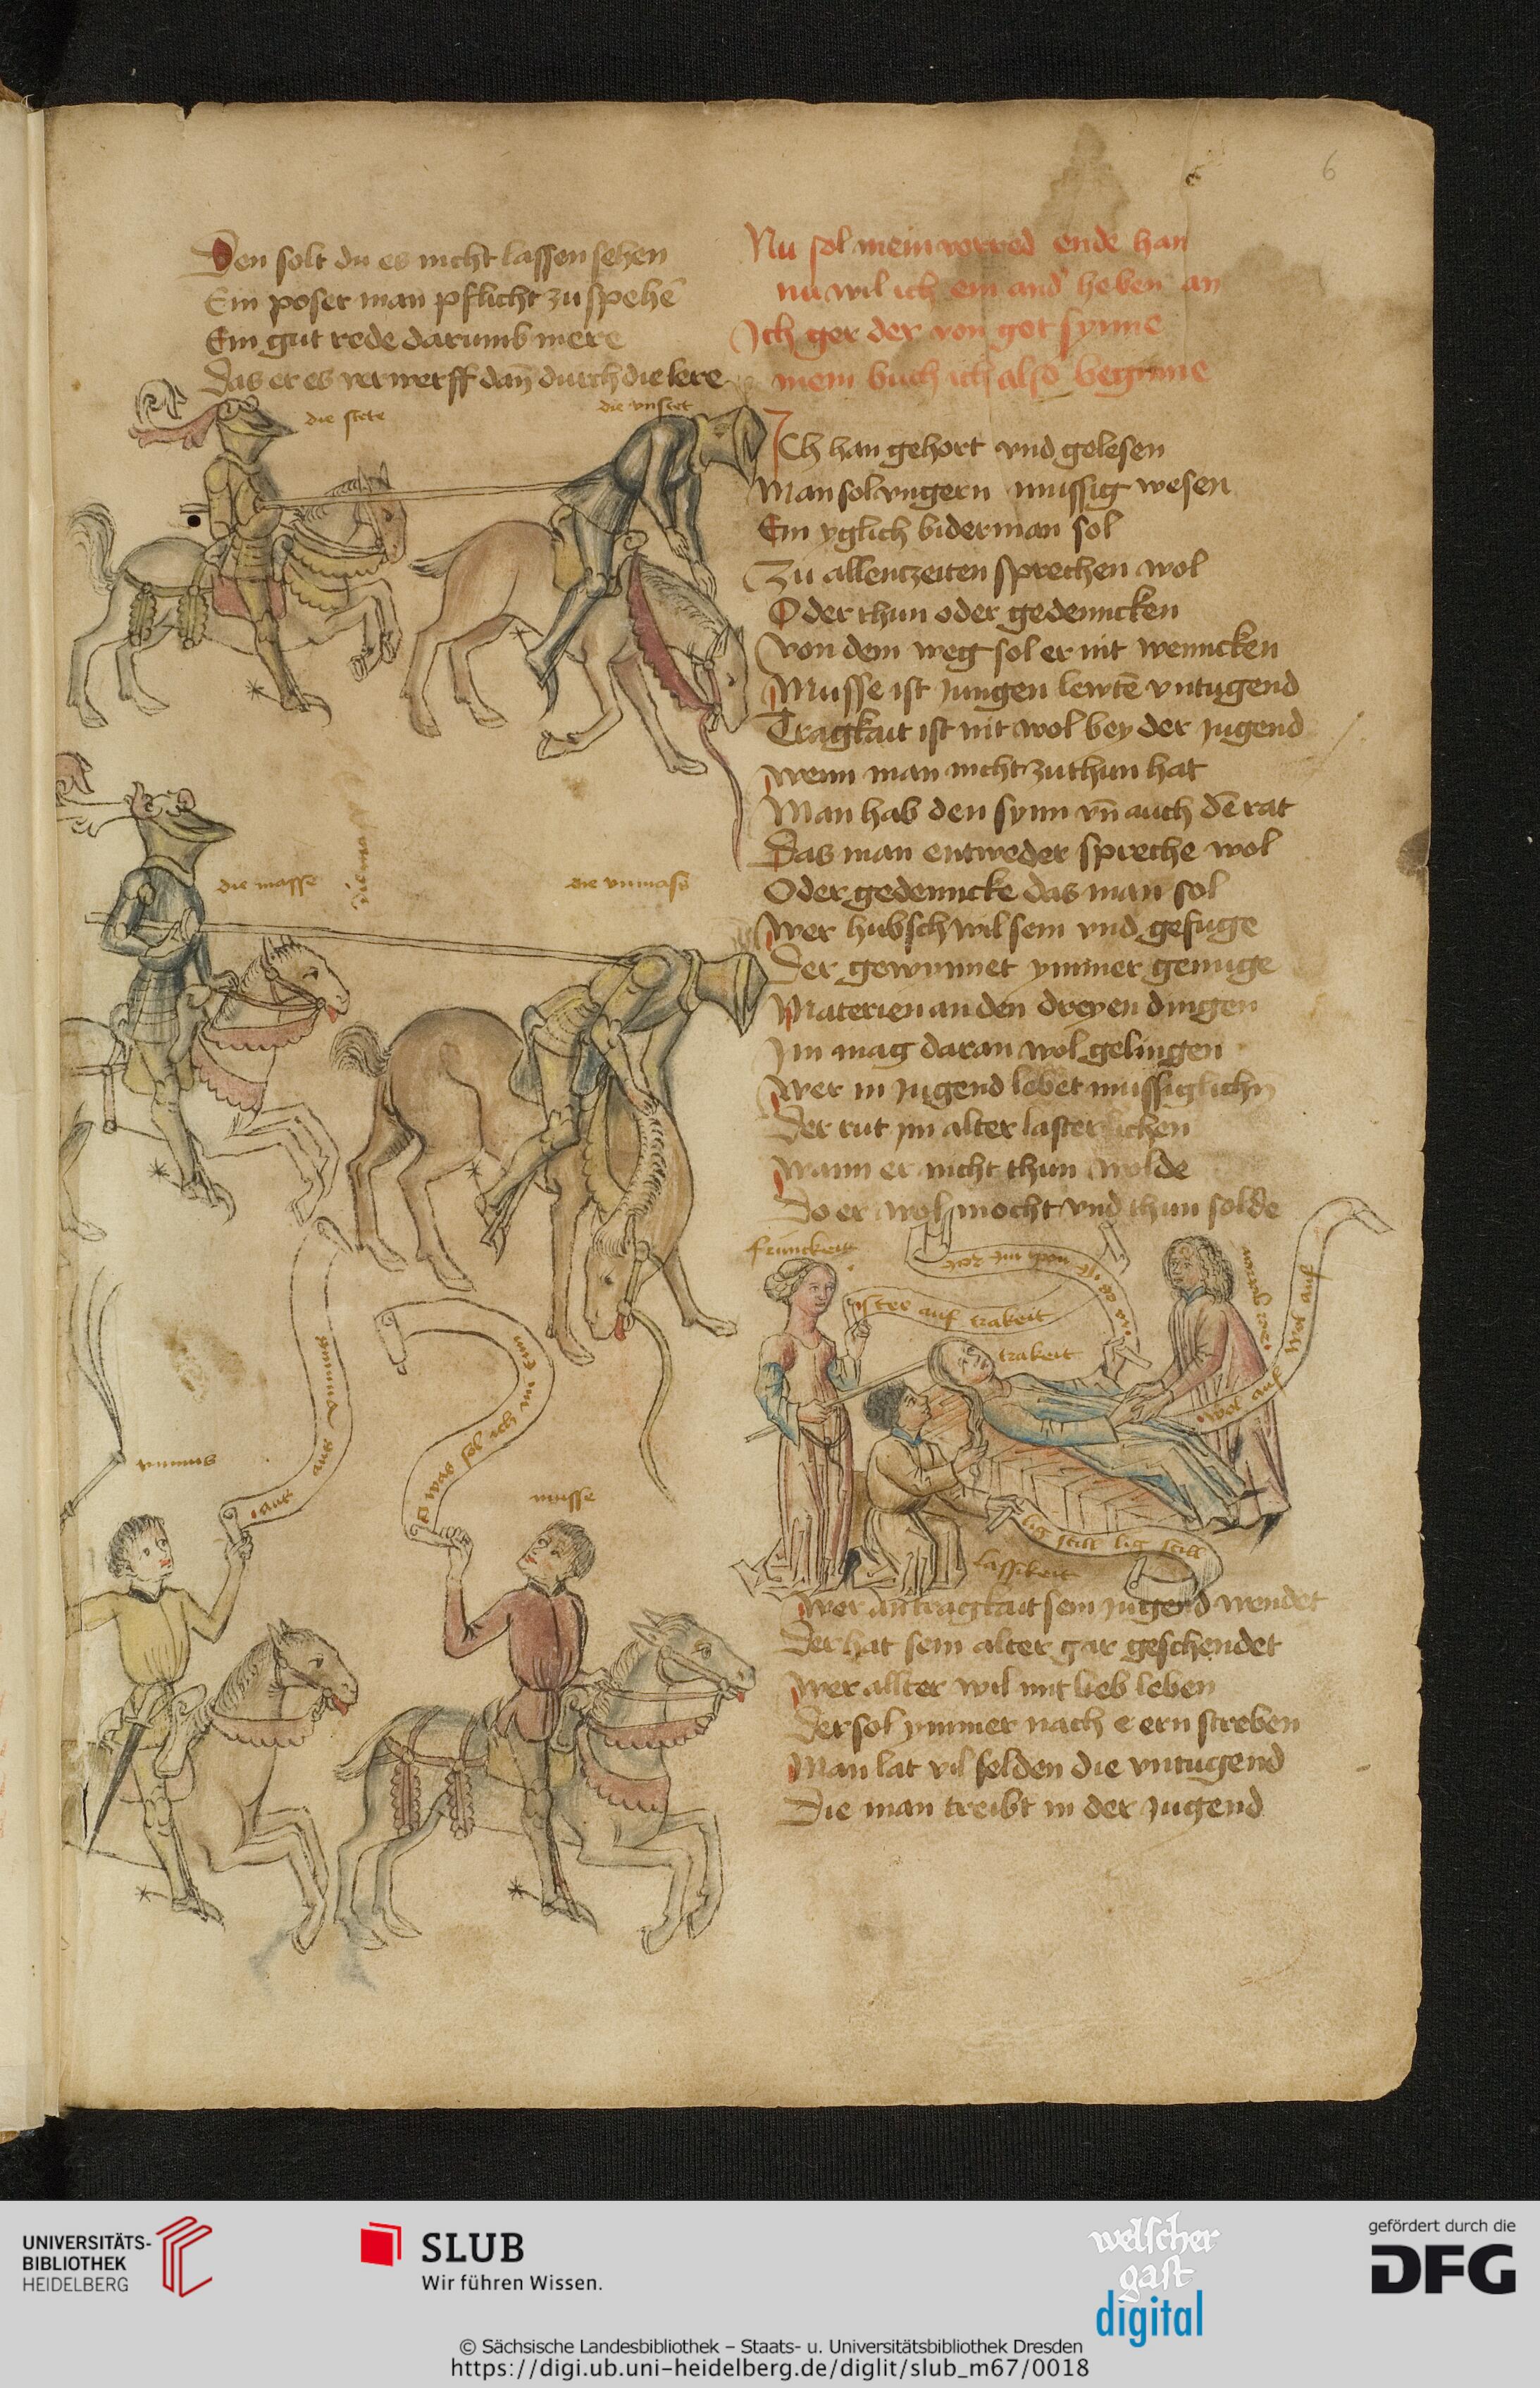 6
Den solt du es nicht lassen sehen
Ein poser man pflicht zu spehē
Ein gut rede darumb mere
Das er es verwerff dan̄ durch die lere
die stete
die vnstet
die masse
die vnmass
vnnucz
muss
was sol ich
Nu sol mein vorred ende han
nu wil ich ein and' heben an
Ich ger der von got synne
mein buch ich also beginne
Ich han gehort vnd gelesen
Man sol vngern mussig wesen
Ein yglich biderman sol
Zu allentzeiten sprechen wol
Oder thun oder gedenncken
von dem weg sol er nit wenncken
Musse ist jungen lewtē vntugend
Tragkait ist nit wol bey der jugend
wenn man nicht zuthun hat
Man hab den synn vn̄ auch dē rat
Das man entweder spreche wol
Oder gedenncke das man sol
wer hubsch wil sein vnd gefuge
Der gewynnet ymmer genuge
Materien an den dreyen dingen
Im mag daran wol gelingen
wer in jugend lebet mussiglichn
Der rut im alter lasterlichen
wann er nicht thun wolde
Do er wol mocht vnd thun solde
frunckeit
auf trakeit
trakeit
wol auf
wol auf
lig still lig still
lassikeit
wer an tragkait sein jugend wendet
Der hat sein alter gar geschendet
wer allter wil mit lieb leben
Der sol ymmer nach e ern streben
Man lat vil selden die vntugend
Die man treibt in der jugend
UNIVERSITÄTS-
BIBLIOTHEK
HEIDELBERG
SLUB
Wir führen Wissen.
welscher
gast
digital
gefördert durch die
DFG
© Sächsische Landesbibliothek – Staats- u. Universitätsbibliothek Dresden
https://digi.ub.uni-heidelberg.de/diglit/slub_m67/0018